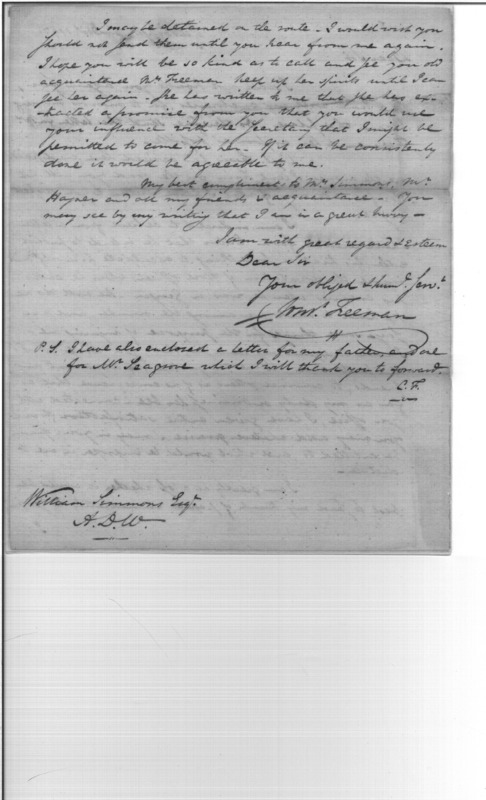 I may be detained on the route. I would wish you
should not send them until you hear from me again.
I hope you will be so kind as to call and see you old
acquaintance Mrs Freeman keep up her spirits until I can
see her again. She has written to me that she has ex-
tracted a promise from you that you would use
your influence with the Secretary that I might be
permitted to come for her. If it can be consistently
done it would be agreeable to me.
My best compliments to Mrs Simmons, Mr.
Hagner and all my friends & acquaintance. You
may see by my writing that I am in a great hurry —
I am with great regard & Esteem
Dear Sir
Your obliged & humb. Serv.t
Freeman
P.S. I have also enclosed a letter for my father, and one
for Mr. Seagrove which I will thank you to forward.
C.F.
William Simmons Esqr.
A.D.W.